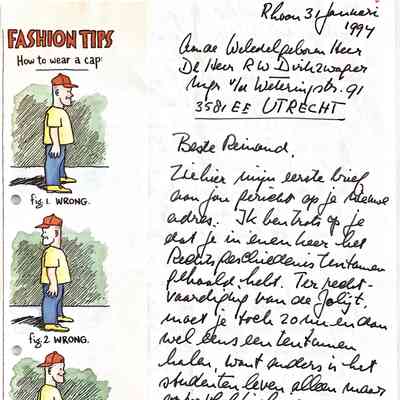 FASHION TIPS
How to wear a cap:
fig 1. WRONG.
fig. 2 WRONG.
Rhoon 31 Januari
1994
Weledelgeboren Heer
De Heer R W
Mgr v/d Weteringstr. 91
3581 EE UTRECHT
Beste Reinand,
Ziehier mijn eerste brief
aan jou gericht op je nieuwe
adres. Ik ben trots op je
dat je in enen keer het
Rechtsgeschiedenis tentamen
gehaald hebt. Ter recht-
vaardiging van de Jolijt,
moet je toch zo nu en dan
wel eens een tentamen
halen, want anders is het
studenten leven alleen maar